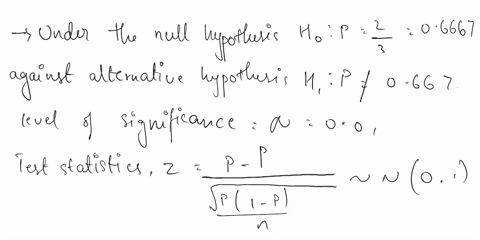 → Under the null hypothesis H₀ : P = 2/3 = 0.6667
against alternative hypothesis H₁ : P ≠ 0.667
level of significance = α = 0.01
Test statistics, z = (p - P) / (√P(1-P)/n) ~ N(0.1)